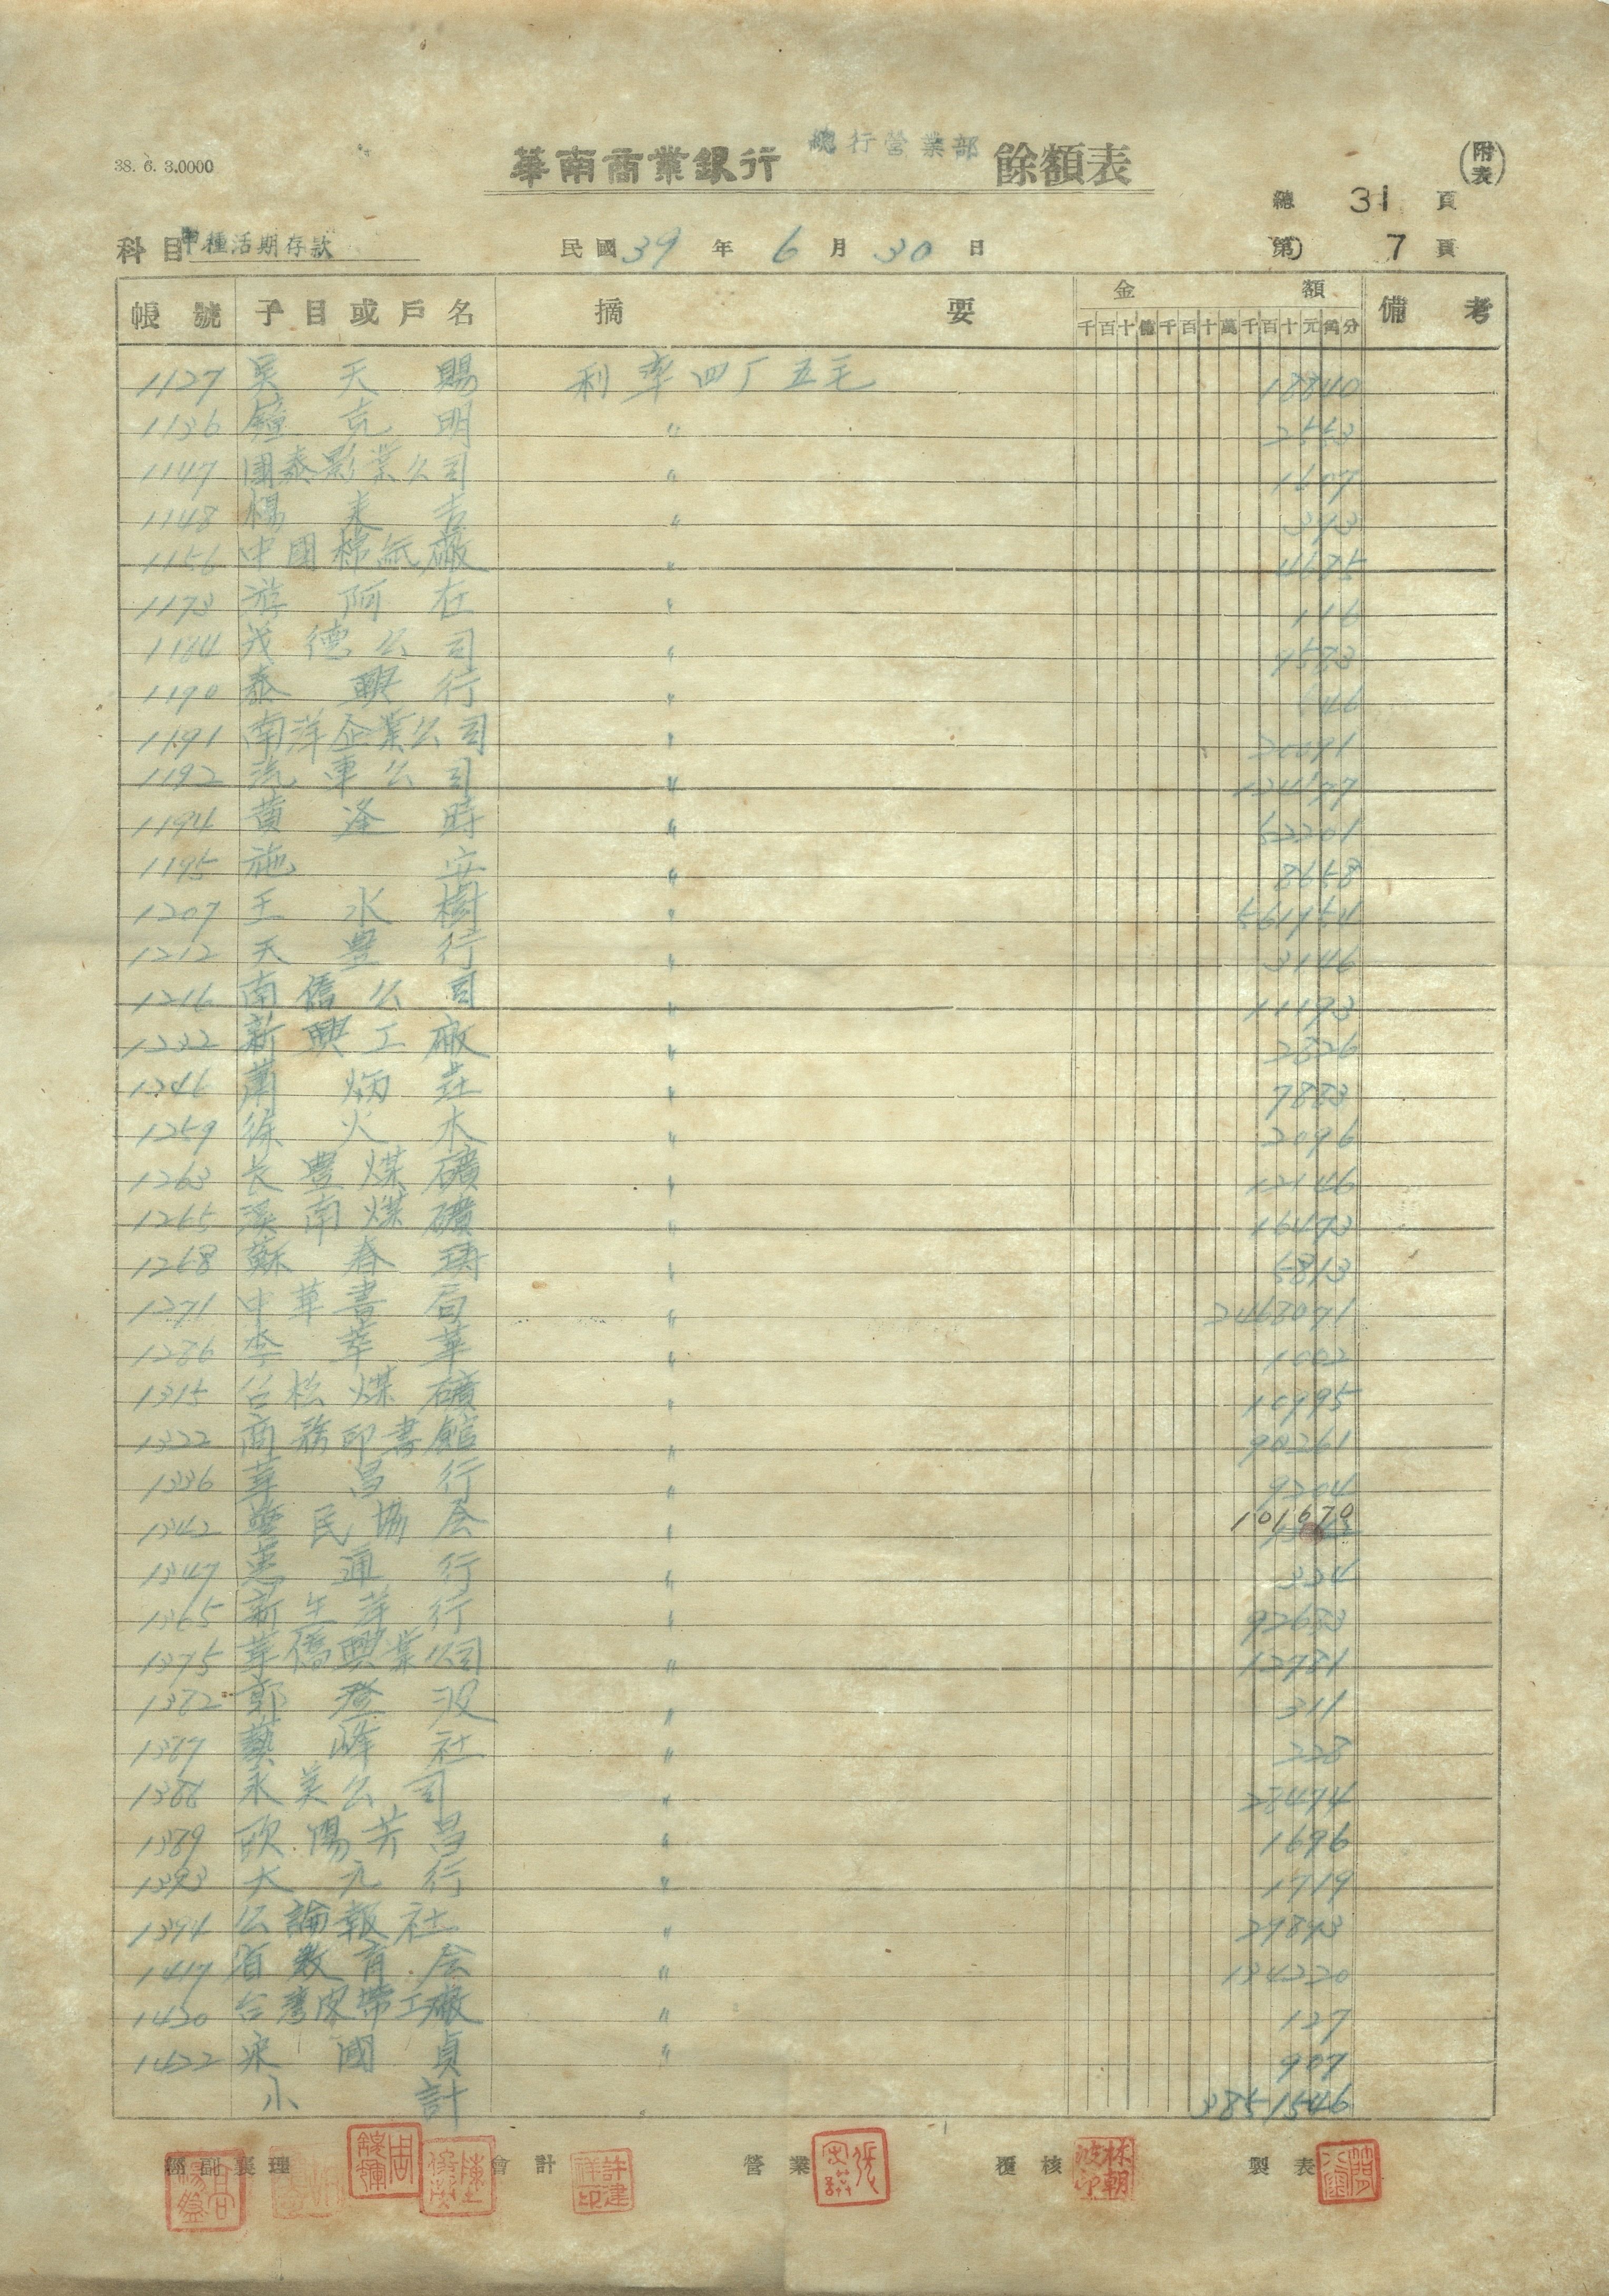 38. 6. 3.0000
華南商業銀行 總行營業部 餘額表 (附表)
總 31 頁
科目 甲種活期存款 民國 39 年 6 月 30 日 第 7 頁
帳號 子目或戶名 摘要 金額 備考
千百十億千百十萬千百十元角分
1127 吳天賜 利率四厂五毛 18840
1136 鐘克明 〃 2553
1147 國泰影業公司 〃 1607
1148 楊来吉 〃 393
1156 中國棉紙廠 〃
1173 游阿在 〃 116
1184 茂德公司 〃
1190 泰興行 〃
1191 南洋企業公司 〃
1192 汽車公司 〃
1194 黃逢時 〃 52201
1195 施安 〃 8658
1207 王水樹 〃 561954
1212 天豊行 〃 3146
1216 南僑公司 〃 11193
1232 新興工廠 〃 2326
1246 蕭炳 〃 7883
1259 徐火木 〃 2096
1263 長豊煤礦 〃 12146
1265 溪南煤礦 〃 16493
1268 蘇春 〃 5813
1271 中華書局 〃
1286 李華 〃 1002
1315 台松煤礦 〃 10995
1322 商務印書館 〃 90261
1336 華昌行 〃 9204
1342 警民協会 〃 101670
1347 惠通行 〃 334
1365 新生洋行 〃 92683
1375 華僑興業公司 〃 12781
1382 郭登波 〃 311
1387 藝峰社 〃 228
1388 永美公司 〃 28494
1389 欧陽芳昌 〃 1696
1393 大元行 〃 1719
1394 公論報社 〃 29893
1417 省教育会 〃 134220
1420 台灣皮帶工廠 〃 127
1422 宋國貞 〃 987
小計 3851546
經副襄理 會計 營業 覆核 製表
許建祥印 林朝波印